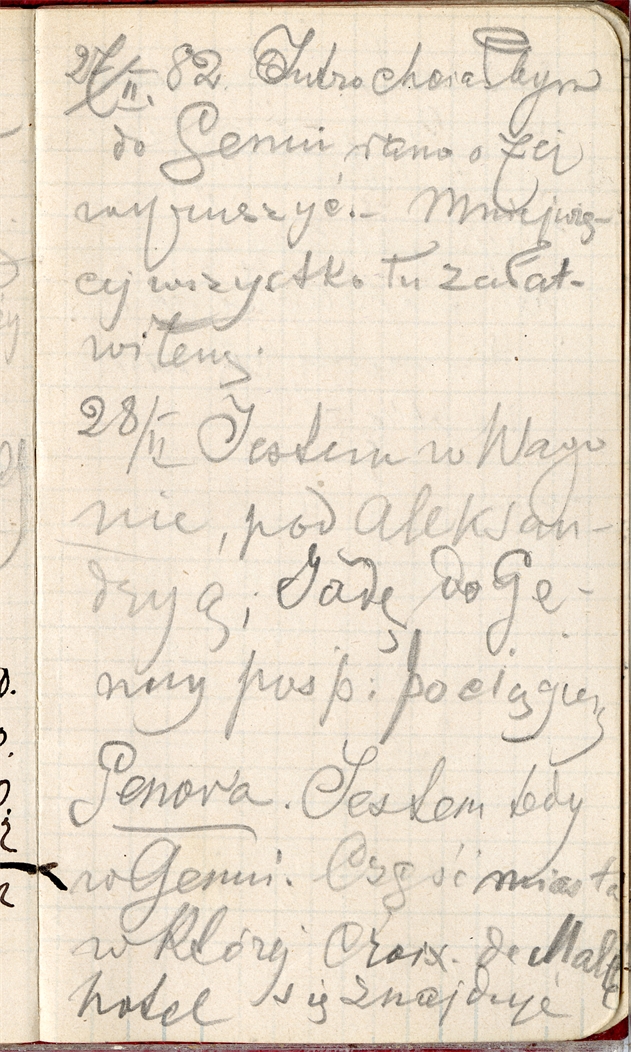 27/II. 82. Jutro chciałbym
do Genui rano o 7ej
wyruszyć.- Mniejwię-
cej wszystko tu załat-
wiłem.
28/II Jestem w Wago
nie, pod Aleksan-
dryą; Jadę do Ge-
nuy posp: pociągiem
Genova. Jestem tedy
w Genui. Część miasta
w której Croix de Malte
hotel się znajduje